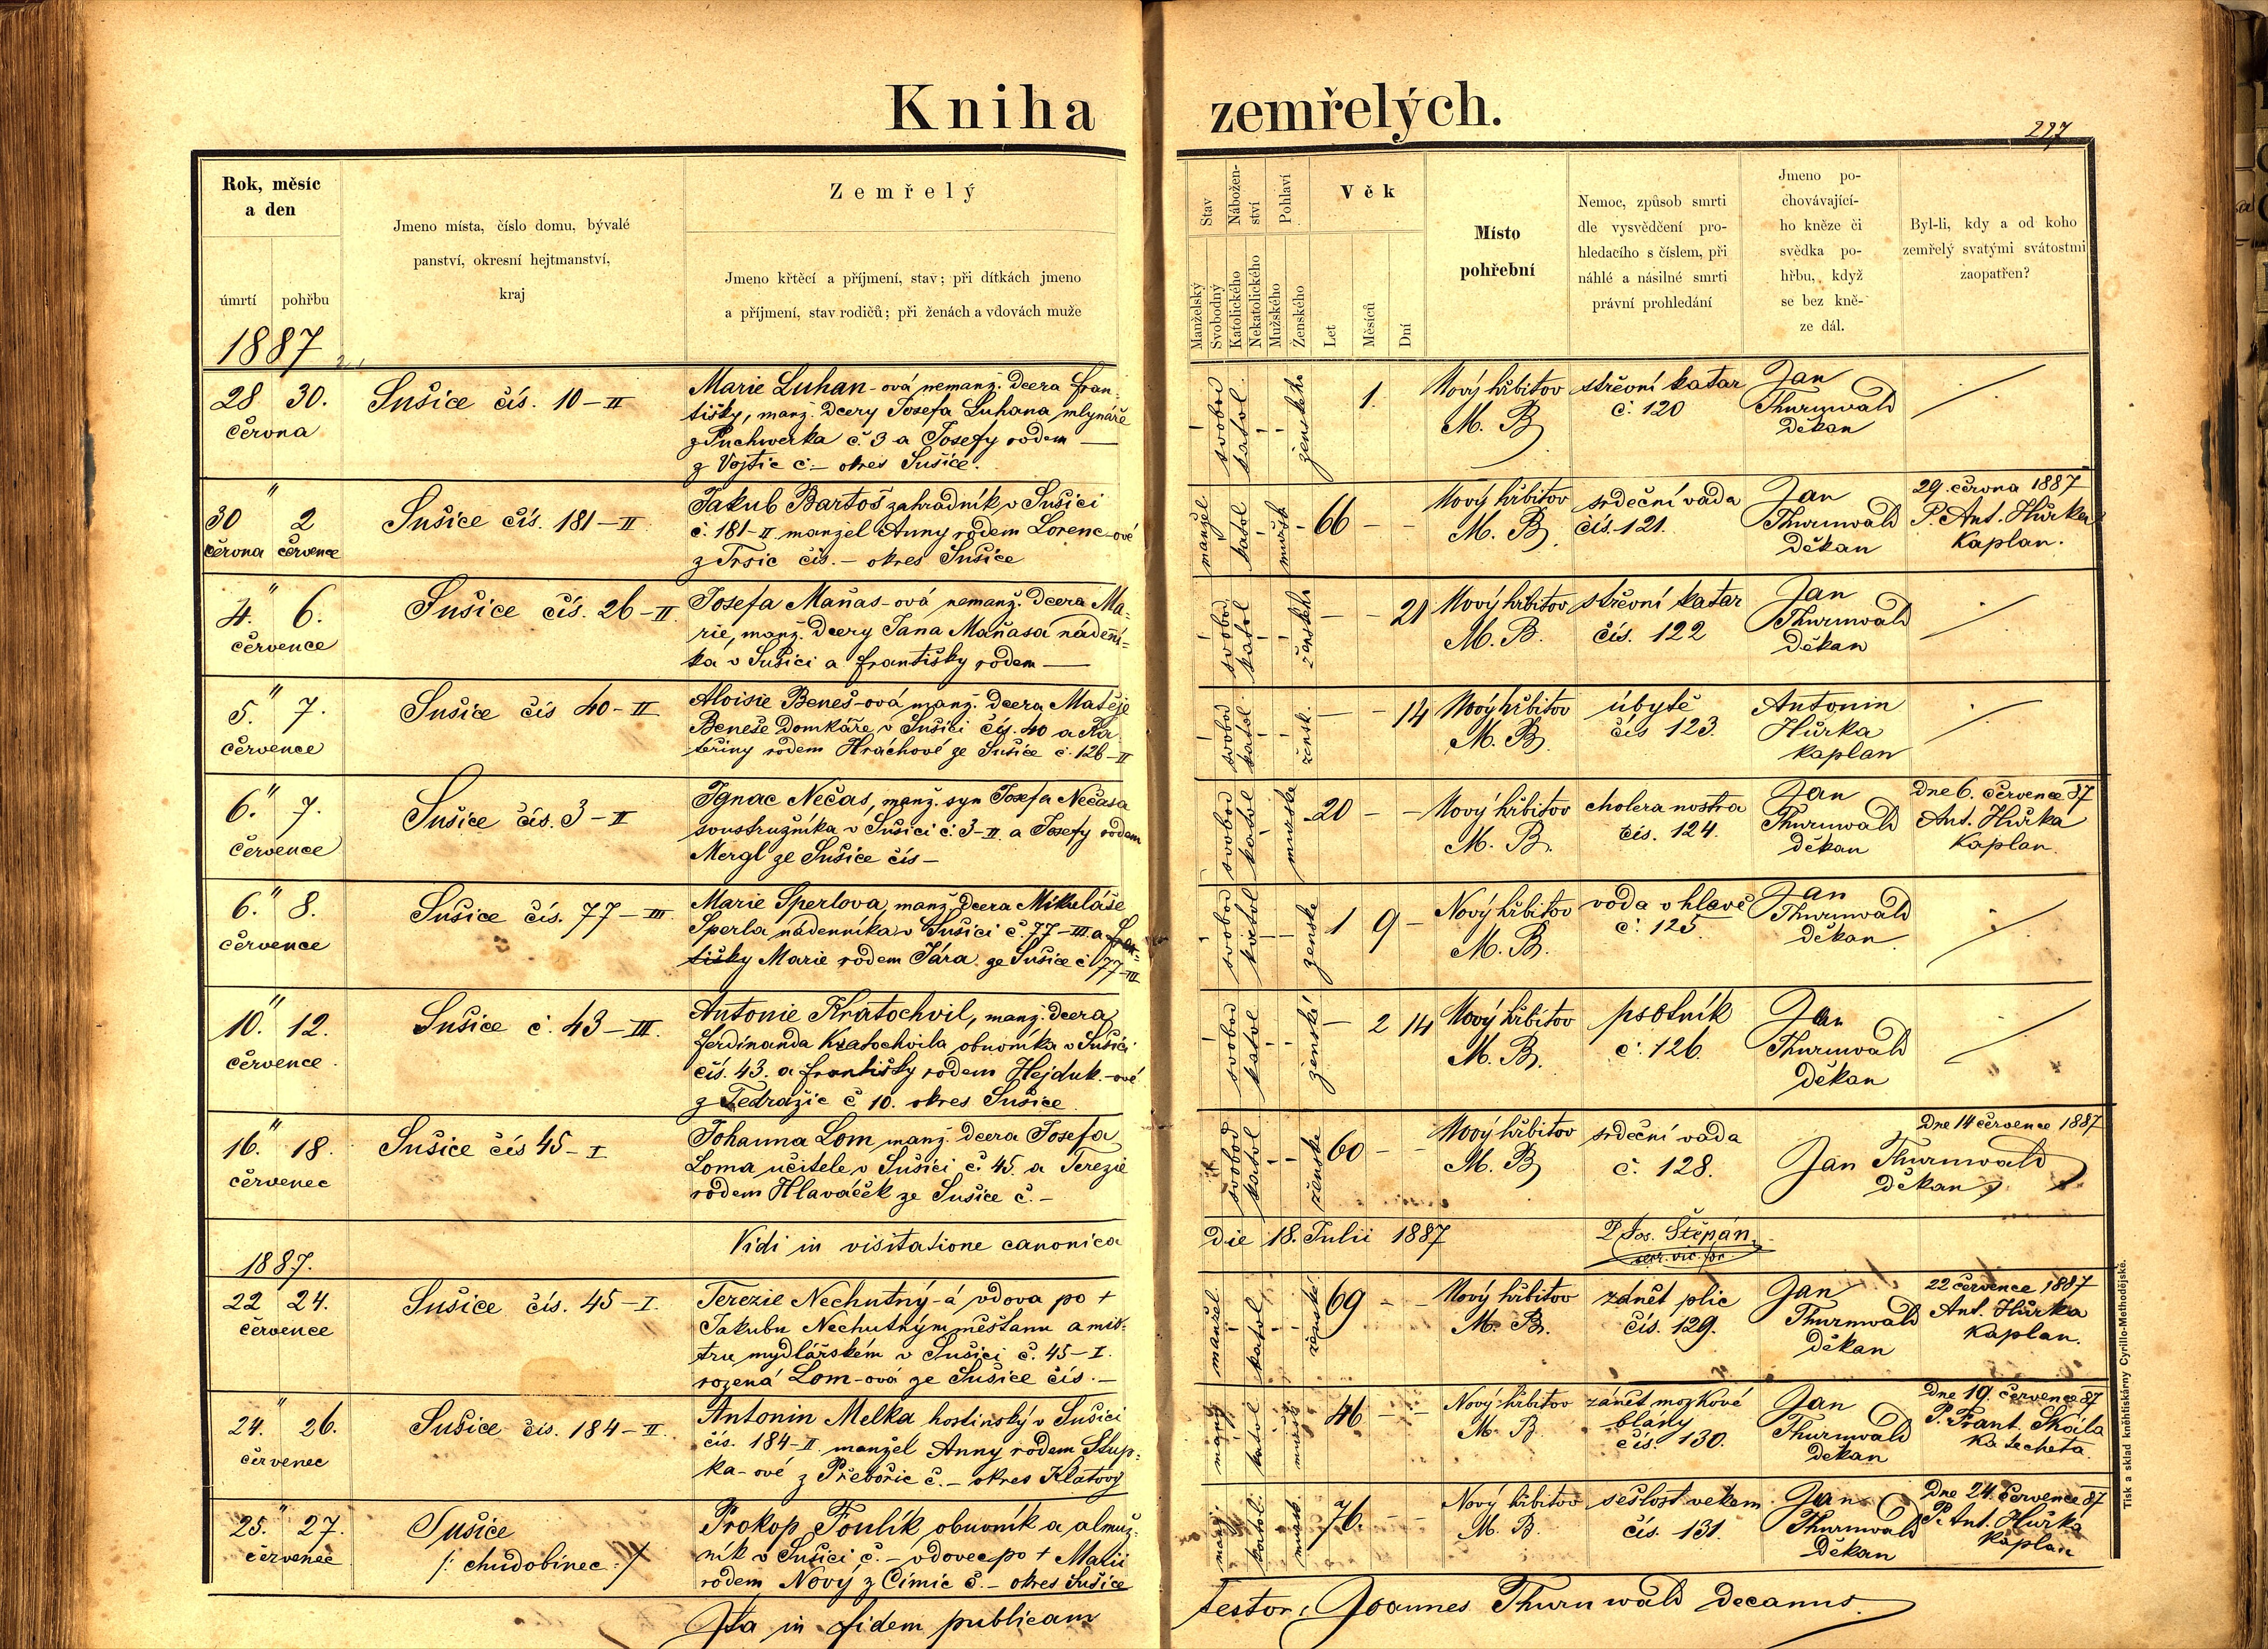 Kniha zemřelých.
227
Rok, měsíc
a den
úmrtí pohřbu
Jmeno místa, číslo domu, bývalé
panství, okresní hejtmanství,
kraj
Zemřelý
Jmeno křtěcí a příjmení, stav; při dítkách jmeno
a příjmení, stav rodičů; při ženách a vdovách muže
Stav
Manželský
Svobodný
Nábožen-
ství
Katolického
Nekatolického
Pohlaví
Mužského
Ženského
Věk
Let
Měsíců
Dní
Místo
pohřební
Nemoc, způsob smrti
dle vysvědčení pro-
hledacího s číslem, při
náhlé a násilné smrti
právní prohledání
Jmeno po-
chovávající-
ho kněze či
svědka po-
hřbu, když
se bez kně-
ze dál.
Byl-li, kdy a od koho
zemřelý svatými svátostmi
zaopatřen?
1887
28 30.
června
Sušice čís. 10-II
Marie Luhan-ová nemanž. dcera Fran-
tišky, manž. dcery Josefa Luhana mlynáře
z Puchwerka č 3 a Josefy rodem —
z Vojtic č.- okres Sušice.
svobod
katol.
ženského
1.
Nový hřbitov
M. B.
střevní katar
č. 120
Jan
Thurnwald
děkan
30 " 2
června července
Sušice čís. 181-II
Jakub Bartoš zahradník v Sušici
č. 181-II. manžel Anny rodem Lorenc-ové
z Trsic čís. - okres Sušice
manžel
katol
mužsk
66 - -
Nový hřbitov
M. B.
srdeční vada
čis. 121.
Jan
Thurnwald
Děkan
29. června 1887
P. Ant. Hůrka
Kaplan.
4. " 6.
července
Sušice čís. 26-II
Josefa Maňas-ová nemanž. dcera Ma-
rie, manž. dcery Jana Maňasa nádení-
ka v Sušici a Františky rodem —
svobod
katol
ženského
- - 21
Nový hřbitov
M. B.
střevní katar
čís. 122
Jan
Thurnwald
Děkan
5. " 7.
července
Sušice čís 40-II
Aloisie Beneš-ová manž. dcera Matěje
Beneše Domkáře v Sušici čís. 40 a Ka-
teřiny rodem Hráchové ze Sušice č. 126-II
svobod
katol.
žensk.
- - 14
Nový hřbitov
M. B.
úbytě
čís 123.
Antonin
Hůrka
kaplan
6. " 7.
července
Sušice čís. 3-II
Ignac Nečas, manž. syn Josefa Nečasa
soustružníka v Sušici č. 3-II. a Josefy rodem
Mergl ze Sušice čís-
svobod
katol
mužské
20 - -
Nový hřbitov
M. B.
cholera nostra
čís. 124.
Jan
Thurnwald
děkan
Dne 6. července 87
Ant. Hůrka
Kaplan.
6. " 8.
července
Sušice čís. 77-III
Marie Sperlova, manž. dcera Mikuláše
Sperla nádenníka v Sušici č. 77-III. a Fran-
tišky Marie rodem Jára ze Sušice č. 77-III
svobod
katol
ženske
1 9 -
Nový hřbitov
M. B.
voda v hlavě
č. 125.
Jan
Thurnwald
děkan.
10. " 12.
července.
Sušice č. 43-III.
Antonie Kratochvil, manž. dcera
Ferdinanda Kratochvila obuvníka v Sušici
čís. 43. a Františky rodem Hejduk-ové
z Tedražic č 10. okres Sušice.
svobod
katol
ženské
- 2 14
Nový hřbitov
M. B.
psotník
č. 126.
Jan
Thurnwald
Děkan
16. " 18.
červenec
Sušice čís 45-I
Johanna Lom manž. dcera Josefa
Loma učitele v Sušici č. 45. a Terezie
rodem Hlaváček ze Sušice č.-
svobod
katol
ženske
60 - -
Nový hřbitov
M. B.
srdeční vada
č. 128.
Dne 14 července 1887
Jan Thurnwald
děkan
Vidi in visitatione canonica
die 18. Julii 1887
P Jos. Štěpán.
secr. vic. for.
1887.
22 24.
července
Sušice čís. 45-I.
Terezie Nechutný-á vdova po +
Jakubu Nechutným měšťanu a mis-
tru mydlářském v Sušici č. 45-I.
rozená Lom-ová ze Sušice čís.-
manžel
katol.
ženské
69 - -
Nový hřbitov
M. B.
zánět plic
čís. 129.
Jan
Thurnwald
děkan
22 července 1887
Ant. Hůrka
Kaplan.
24. " 26.
červenec
Sušice čís. 184-II.
Antonin Melka hostinský v Sušici
čís. 184-II. manžel Anny rodem Stup-
ka-ové z Přebořic č.- okres Klatovy
katol
mužsk
46 - -
Nový hřbitov
M. B.
zánět mozkové
blány
čís. 130.
Jan
Thurnwald
děkan
Dne 19. července 87
P. Frant. Skála
Katecheta.
25. " 27.
červenec
Sušice
/: chudobinec :/
Prokop Foulík obuvník a almuž-
ník v Sušici č.- vdovec po + Marii
rodem Nový z Čimic č.- okres Sušice
katol.
mužsk.
76. - -
Nový hřbitov
M. B.
sešlost vekem
čís. 131.
Jan
Thurnwald
Děkan
Dne 24. července 87
P. Ant. Hůrka
kaplan
Ita in fidem publicam
testor, Joannes Thurnwald decanus.
Tisk a sklad kněhtiskárny Cyrillo-Methodějské.